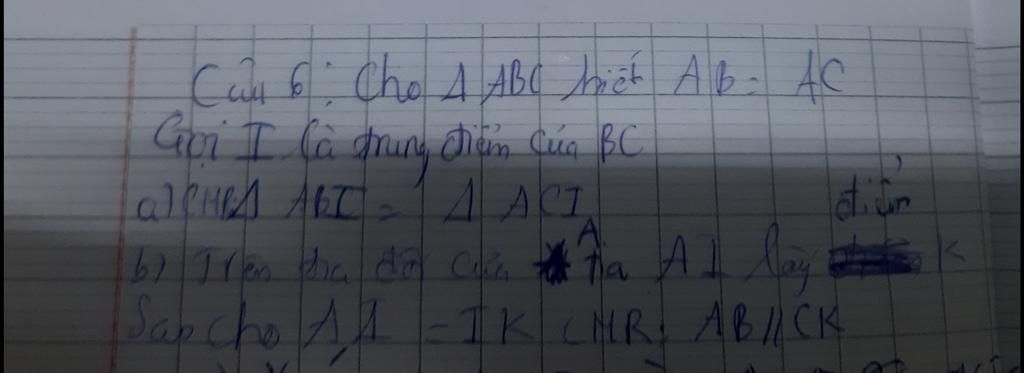 Câu 6: Cho Δ ABC biết AB = AC
Gọi I là trung điểm của BC
a) CMR Δ ABI = Δ ACI
b) Trên tia đối của tia AI lấy điểm K
Sao cho AI = IK CMR: AB // CK